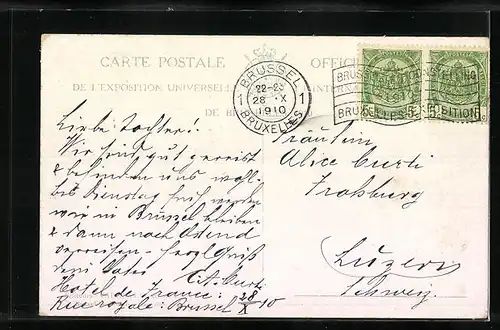 CARTE POSTALE OFFIC
DE L'EXPOSITION UNIVERSELLE INTERNA
DE B
BRUSSEL
1 22-23 1
28 X
1910
BRUXELLES
BRUSSEL
BRUXELLES EXPOSITION
5 5 5 5
Liebe Tochter!
Wir sind gut gereist
& befinden uns wohl.
bis Dienstag früh werden
wir in Brüssel bleiben
& dann nach Ostend
verreisen - Herzl Gruß
dein Vater
Hotel de France:
Rue royale: Brussel 28/X 10
Fräulein
Alice Curti
Frohburg
Luzern
Schweiz